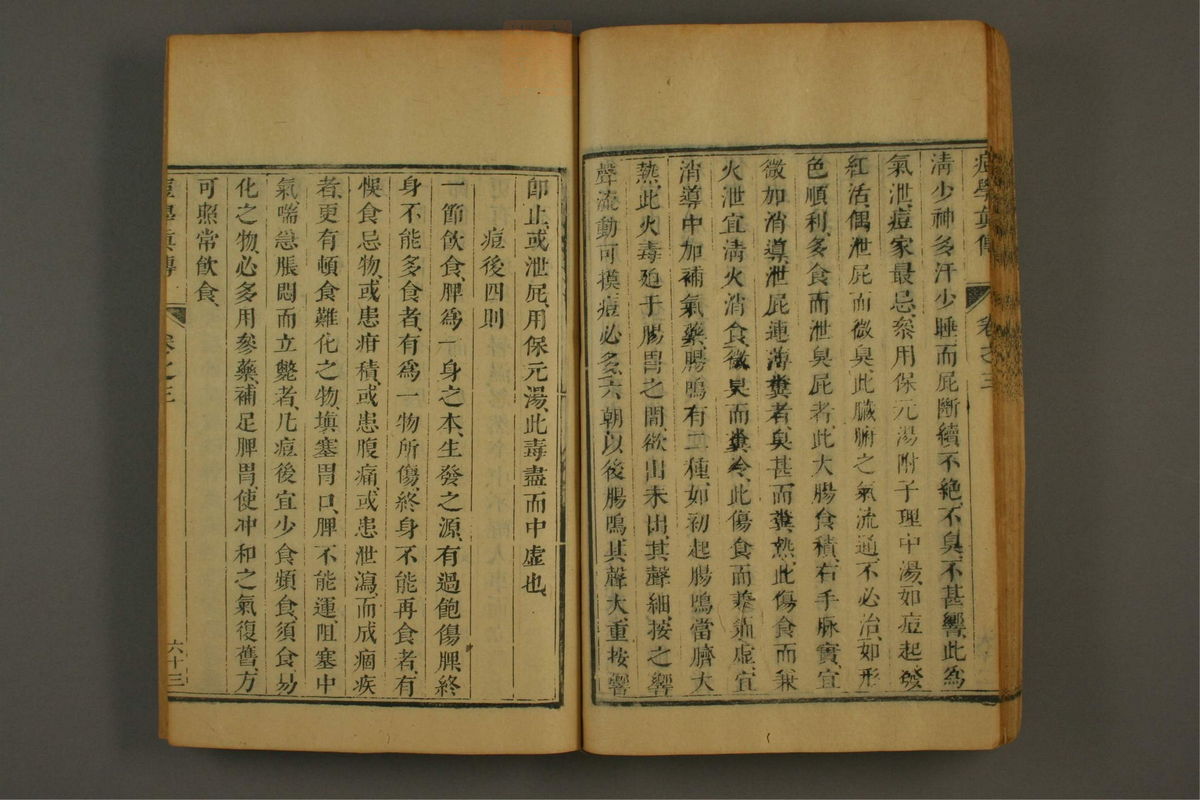 痘學真傳 卷之三
淸少神多汗少睡而屁斷續不絶、不臭、不甚響、此爲
氣泄、痘家最忌、叅用保元湯附子理中湯、如痘起發
紅活、偶泄屁而微臭、此臟腑之氣流通、不必治、如形
色順利、多食而泄臭屁者、此大腸食積、右手脉實、宜
微加消導、泄屁連薄糞者、臭甚而糞熱、此傷食而兼
火泄、宜淸火消食、微臭而糞冷、此傷食而兼虛、宜
消導中加補氣藥、腸鳴有二種、如初起腸鳴、當臍大
熱、此火毒廹于腸胃之間、欲出未出、其聲細、按之響
聲流動可摸、痘必多、六朝以後腸鳴、其聲大、重按響
卽止、或泄屁、用保元湯、此毒盡而中虛也、
痘後四則
一節飲食、脾爲一身之本、生發之源、有過飽傷脾、終
身不能多食者、有爲一物所傷、終身不能再食者、有
悞食忌物、或患疳積、或患腹痛、或患泄瀉、而成痼疾
者、更有頓食難化之物、塡塞胃口、脾不能運、阻塞中
氣、喘急脹悶而立斃者、凡痘後宜少食頻食、須食易
化之物、必多用參藥、補足脾胃、使冲和之氣復舊、方
可照常飲食、
痘學眞傳 卷之三 六十三